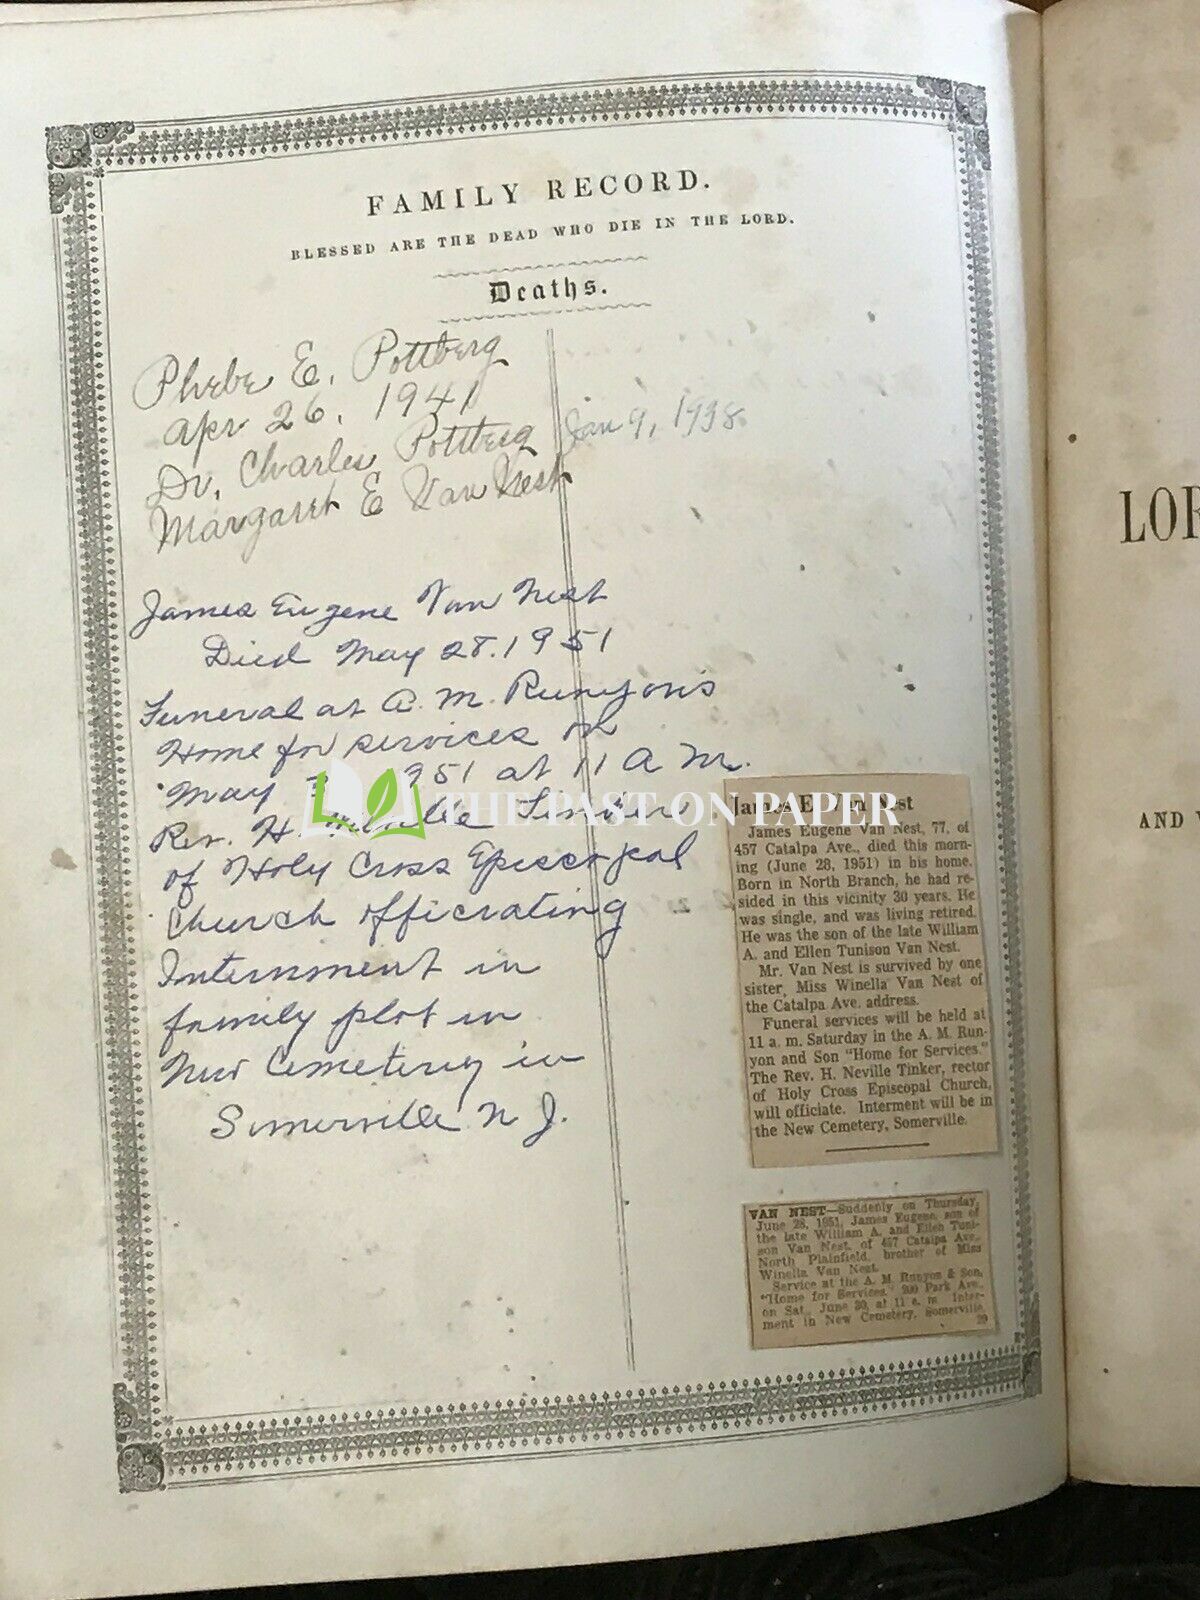 FAMILY RECORD.
BLESSED ARE THE DEAD WHO DIE IN THE LORD.
Deaths.
Phebe E. Pottberg
Apr 26, 1941
Dr. Charles Pottberg Jan 9, 1938.
Margaret E Van Nest
James Eugene Van Nest
Died May 28. 1951
Funeral at A. M. Runyon's
Home for services on
May 951 at 11 A M.
Rev. H. Tinker
of Holy Cross Episcopal
Church officiating
Internment in
family plot in
New Cemetery in
Somerville N J.
THE PAST ON PAPER
James E. Van Nest
James Eugene Van Nest, 77, of
457 Catalpa Ave., died this morn-
ing (June 28, 1951) in his home.
Born in North Branch, he had re-
sided in this vicinity 30 years. He
was single, and was living retired.
He was the son of the late William
A. and Ellen Tunison Van Nest.
Mr. Van Nest is survived by one
sister, Miss Winella Van Nest of
the Catalpa Ave. address.
Funeral services will be held at
11 a. m. Saturday in the A. M. Run-
yon and Son "Home for Services."
The Rev. H. Neville Tinker, rector
of Holy Cross Episcopal Church,
will officiate. Interment will be in
the New Cemetery, Somerville.
VAN NEST—Suddenly on Thursday,
June 28, 1951, James Eugene, son of
the late William A. and Ellen Tuni-
son Van Nest, of 457 Catalpa Ave.,
North Plainfield, brother of Miss
Winella Van Nest.
Service at the A. M. Runyon & Son,
"Home for Services," 900 Park Ave.,
on Sat., June 30, at 11 a. m. Inter-
ment in New Cemetery, Somerville.
29
LOR
AND